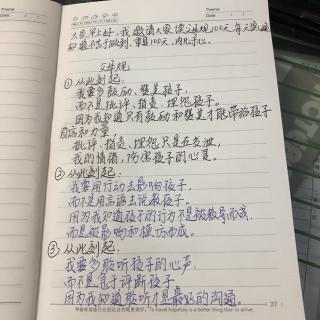 Theme:
Date:
Theme:
大家早上好，我邀请大家读父母规100天，每天读
知道不等于做到，重复100天，内化于心。
父母规
①从此刻起：
我要多鼓励、赞美孩子，
而不是批评、指责、埋怨孩子。
因为我知道只有鼓励和赞美才能带给孩子
自信和力量
批评、指责、埋怨只是在发泄
我的情绪，伤害孩子的心灵。
②从此刻起：
我要用行动去影响孩子，
而不是用言语去说教孩子。
因为我知道孩子的行为不是被教导而成，
而是被影响和模仿而成。
③从此刻起：
我要多聆听孩子的心声，
而不是急于评断孩子，
因为我知道聆听才是最好的沟通。
27
带着希望旅行比到达目的地更美好。To travel hopefully is a better thing than to arrive.